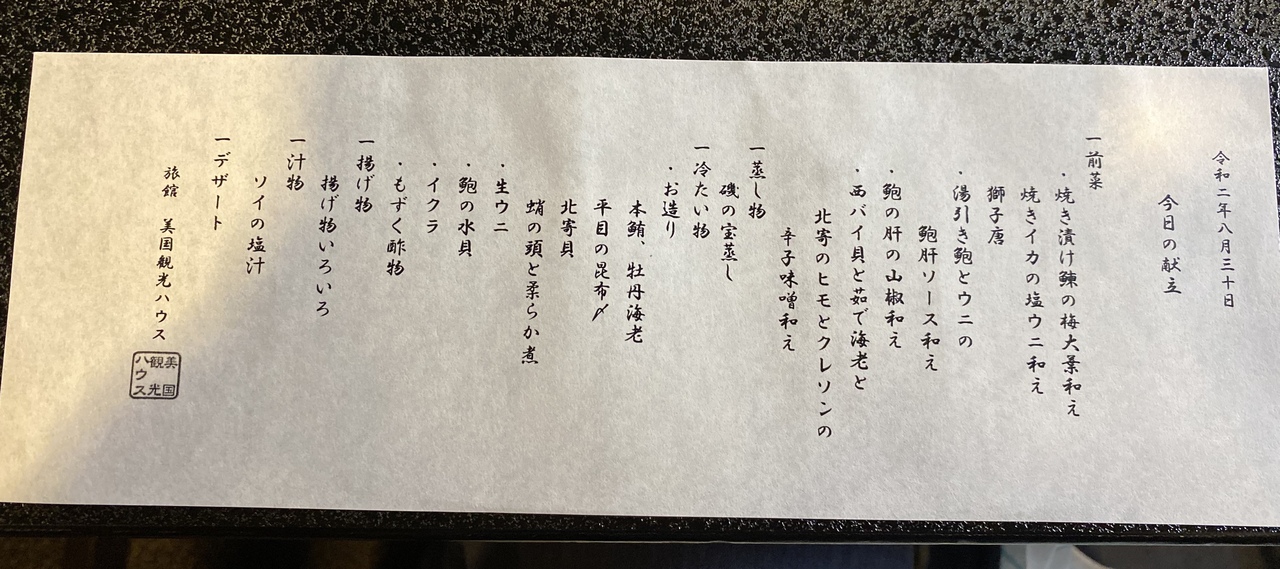 令和二年八月三十日
今日の献立
一前菜
・焼き漬け鰊の梅大葉和え
焼きイカの塩ウニ和え
獅子唐
・湯引き鮑とウニの
鮑肝ソース和え
・鮑の肝の山椒和え
・西バイ貝と茹で海老と
北寄のヒモとクレソンの
辛子味噌和え
一蒸し物
磯の宝蒸し
一冷たい物
・お造り
本鮪、牡丹海老
平目の昆布〆
北寄貝
蛸の頭と柔らか煮
・生ウニ
・鮑の水貝
・イクラ
・もずく酢物
一揚げ物
揚げ物いろいろ
一汁物
ソイの塩汁
一デザート
旅館 美国観光ハウス
美国
観光
ハウス